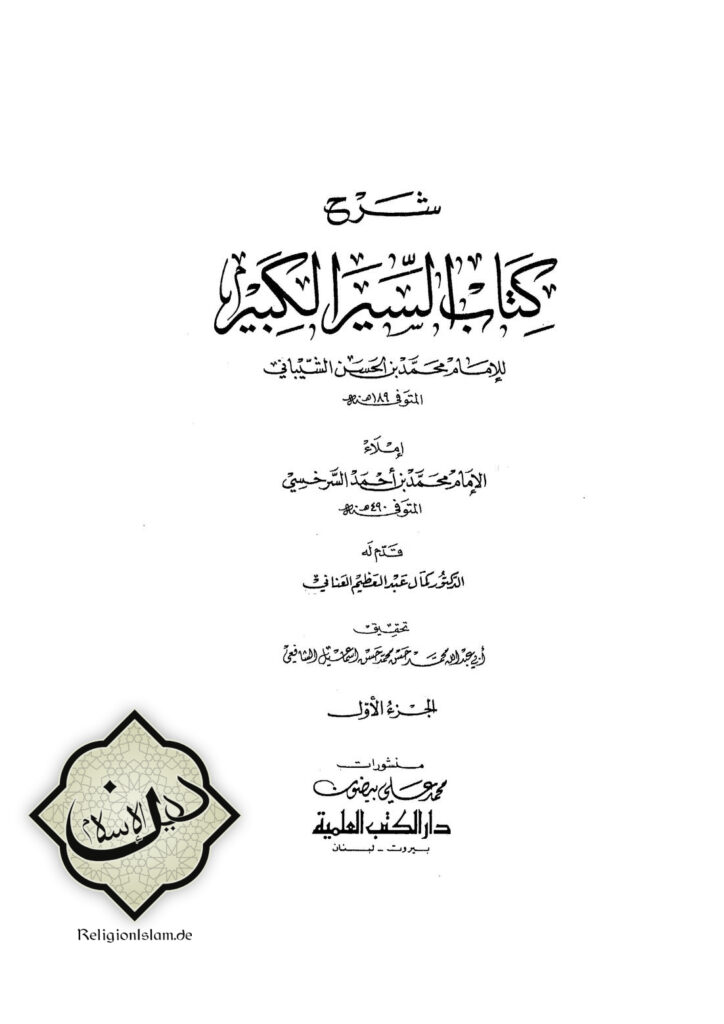 شرح
كتاب السير الكبير
للإمام محمد بن الحسن الشيباني
المتوفى ١٨٩ هـ سنة
إملاء
الإمام محمد بن أحمد السرخسي
المتوفى ٤٩٠ هـ سنة
قدم له
الدكتور كمال عبد العظيم العناني
تحقيق
أبي عبد الله محمد حسن محمد حسن اسماعيل الشافعي
الجزء الأول
منشورات
محمد علي بيضون
دار الكتب العلمية
بيروت - لبنان
دين الإسلام
ReligionIslam.de